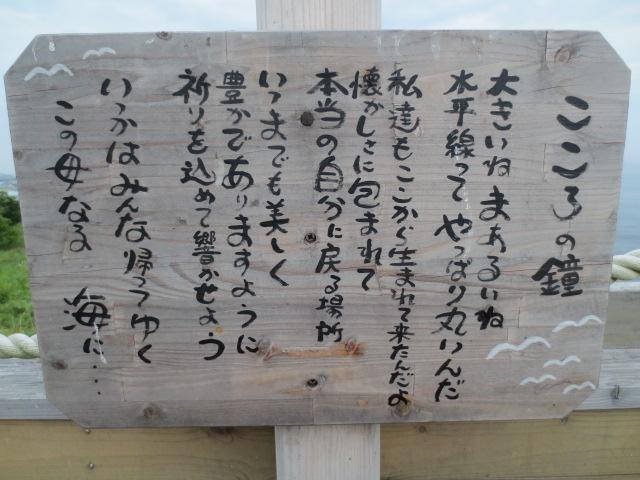 こころの鐘
大きいね まあるいね
水平線って やっぱり丸いんだ
私達もここから生まれて来たんだよ
懐かしさに包まれて
本当の自分に戻る場所
いつまでも美しく
豊かでありますように
祈りを込めて響かせよう
いつかはみんな帰ってゆく
この母なる 海に…